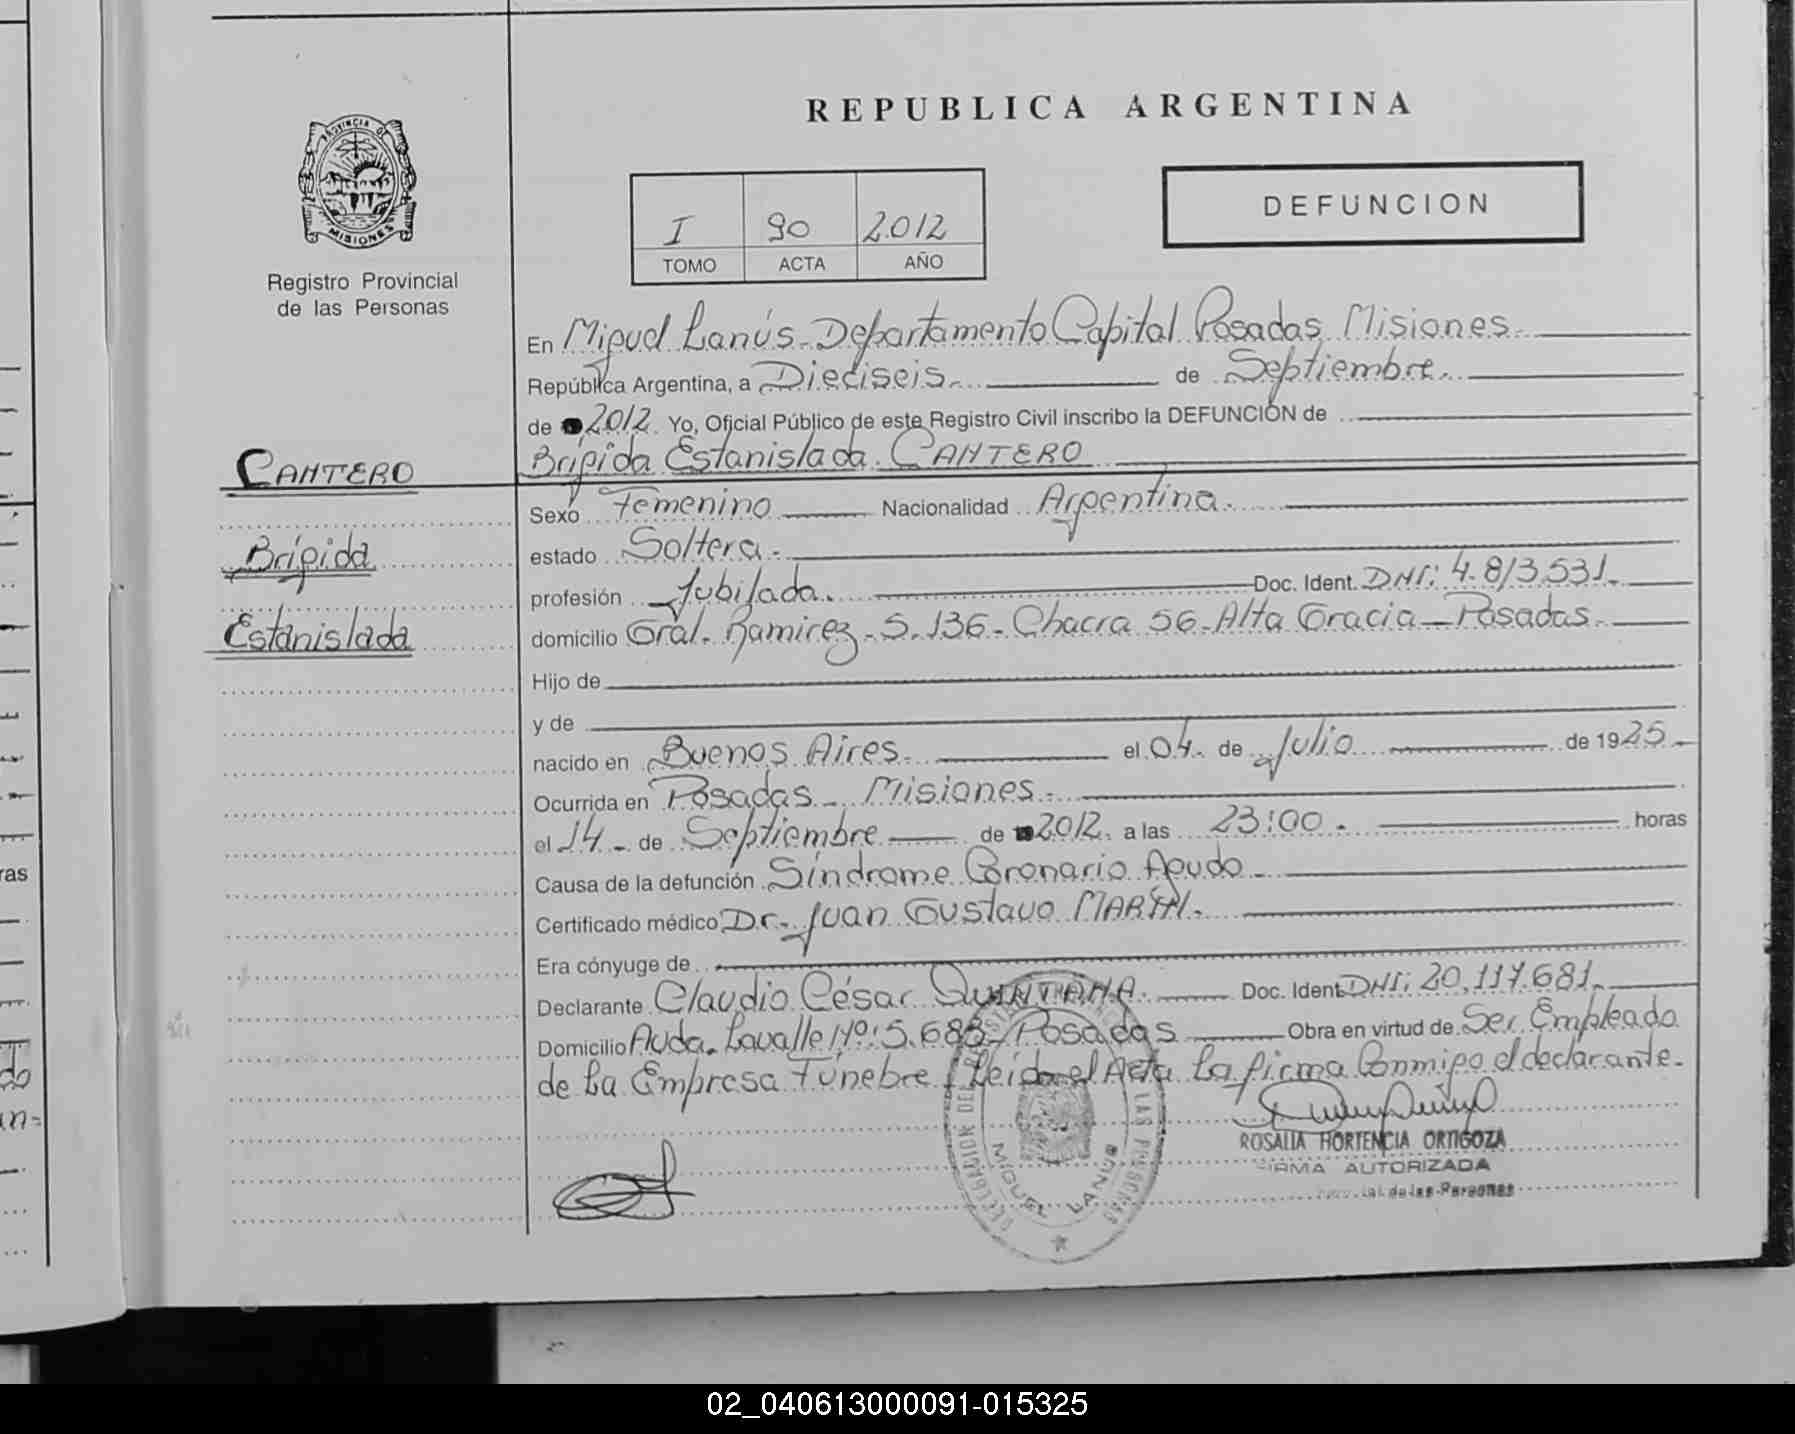 REPUBLICA ARGENTINA
PROVINCIA DE
MISIONES
Registro Provincial
de las Personas
I 90 2.012
TOMO ACTA AÑO
DEFUNCION
En Miguel Lanús - Departamento Capital Posadas, Misiones.
República Argentina, a Dieciseis. de Septiembre.
de 2012. Yo, Oficial Público de este Registro Civil inscribo la DEFUNCIÓN de
Brígida Estanislada. CANTERO
CANTERO
Brígida
Estanislada
Sexo Femenino Nacionalidad Argentina.
estado Soltera.
profesión Jubilada. Doc. Ident. DNI: 4.813.531.
domicilio Gral. Ramirez - S. 136 - Chacra 56 - Alta Gracia - Posadas.
Hijo de
y de
nacido en Buenos Aires. el 04. de Julio de 1925.
Ocurrida en Posadas - Misiones.
el 14 - de Septiembre de 2012. a las 23:00. horas
Causa de la defunción Síndrome Coronario Agudo
Certificado médico Dr. Juan Gustavo MARTIN.
Era cónyuge de
Declarante Claudio César QUINTANA. Doc. Ident. DNI: 20.117.681.
Domicilio Avda. Lavalle Nº: 5.683 - Posadas Obra en virtud de Ser Empleado
de La Empresa Fúnebre. Leída el Acta La firma Conmigo el declarante.
ROSALIA HORTENCIA ORTIGOZA
FIRMA AUTORIZADA
de las Personas
DELEGACION DEL LAS PERSONAS
MIGUEL LANUS
ras
do
02_040613000091-015325